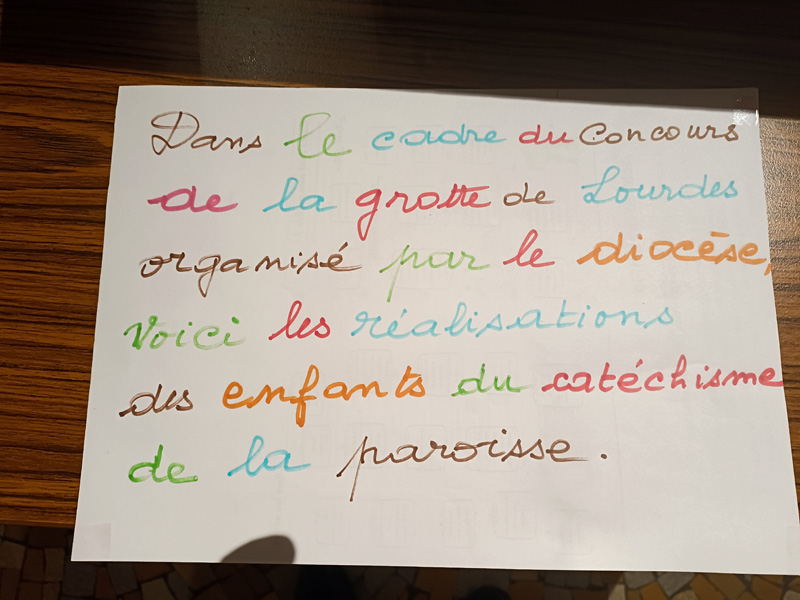 Dans le cadre du Concours
de la grotte de Lourdes
organisé par le diocèse,
Voici les réalisations
des enfants du catéchisme
de la paroisse.